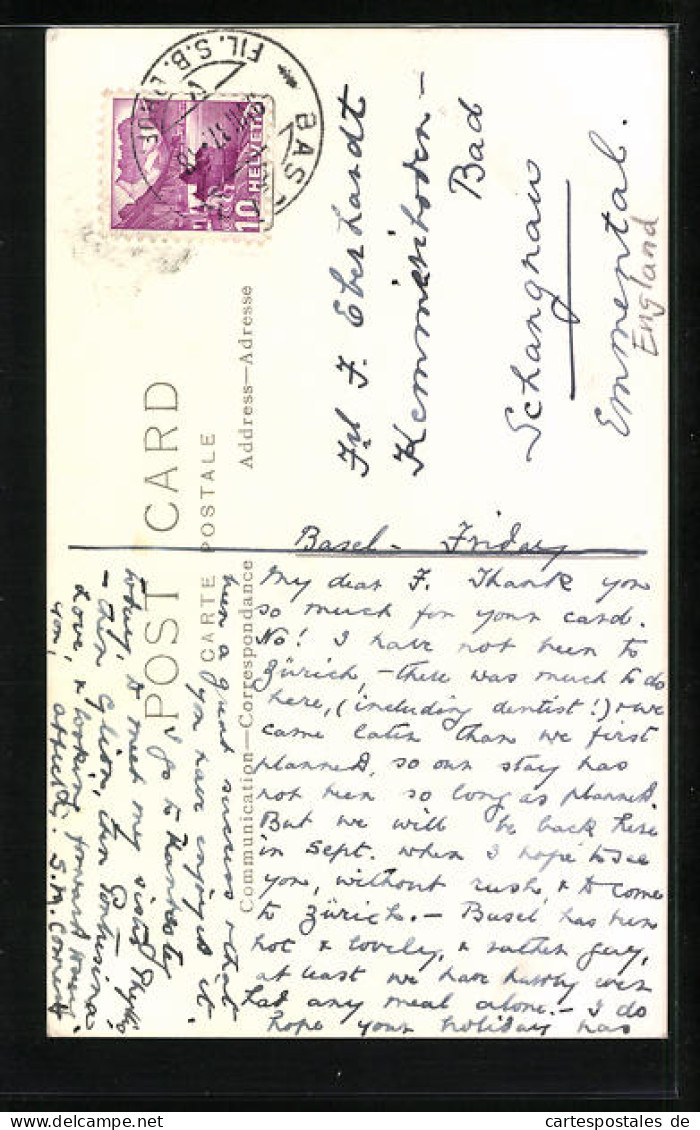 POST CARD
CARTE POSTALE
Communication—Correspondance
Address—Adresse
BAS
FIL. S.B.
HELVETIA
10
Frl F. Eberhardt
Kemmeriboden-
Bad
Schangnau
Emmental.
England
Basel - Friday
My dear F. Thank you
so much for your card.
No! I have not been to
Zürich, - there was much to do
here, (including dentist!) & we
came later than we first
planned, so our stay has
not been so long as planned.
But we will be back here
in Sept. when I hope to see
you, without rush, & to come
to Zürich. - Basel has been
hot & lovely, & rather gay,
at least we have hardly even
had any meal alone. - I do
hope your holiday has
been a great success & that
you have enjoyed it.
I go to
to meet my sister
- then Glion, then Pontresina
Love, & looking forward
you,
affectly. S.M.
cartespostales.de